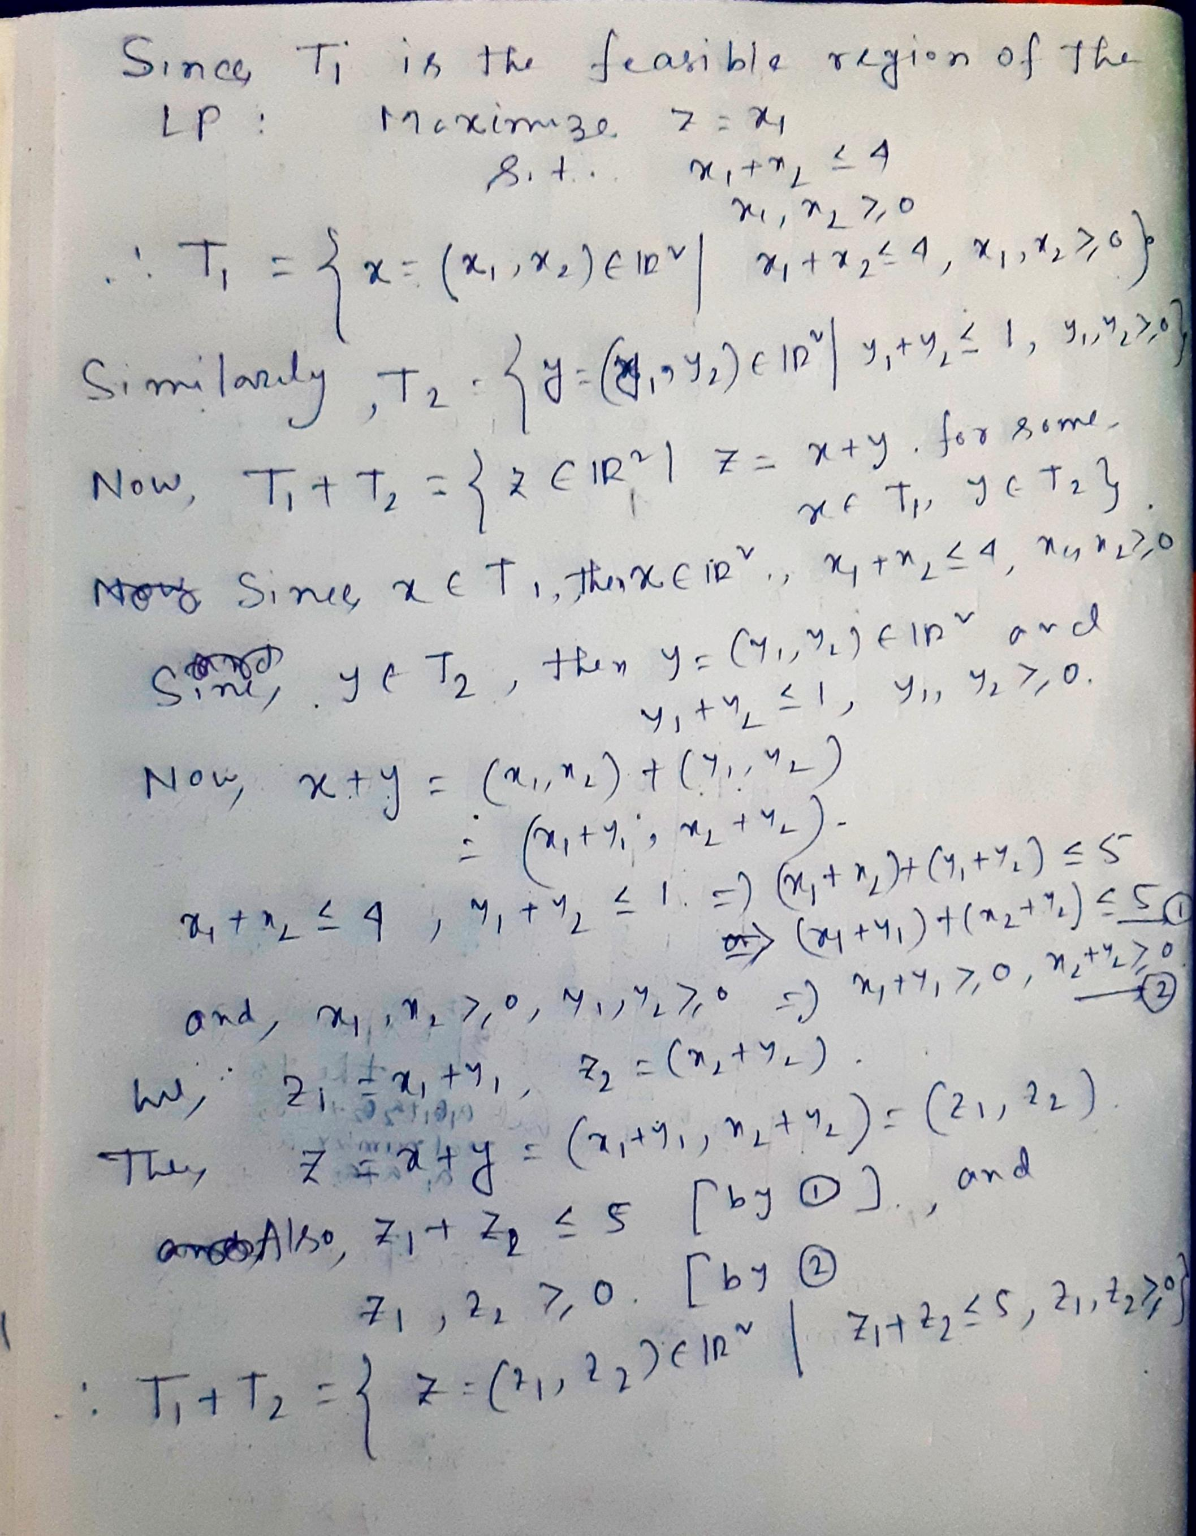 Since, T₁ is the feasible region of the
LP : Maximize z = x₁
s.t. x₁+x₂ ≤ 4
x₁, x₂ ≥ 0
∴ T₁ = { x = (x₁, x₂) ∈ ℝ² | x₁+x₂ ≤ 4, x₁, x₂ ≥ 0 }
Similarly, T₂ = { y = (y₁, y₂) ∈ ℝ² | y₁+y₂ ≤ 1, y₁, y₂ ≥ 0 }
Now, T₁ + T₂ = { z ∈ ℝ² | z = x+y, for some
x ∈ T₁, y ∈ T₂ }.
Since, x ∈ T₁, then x ∈ ℝ², x₁+x₂ ≤ 4, x₁, x₂ ≥ 0
Since, y ∈ T₂, then y = (y₁, y₂) ∈ ℝ² and
y₁+y₂ ≤ 1, y₁, y₂ ≥ 0.
Now, x+y = (x₁, x₂) + (y₁, y₂)
= (x₁+y₁, x₂+y₂).
x₁+x₂ ≤ 4, y₁+y₂ ≤ 1. ⇒ (x₁+x₂)+(y₁+y₂) ≤ 5
⇒ (x₁+y₁)+(x₂+y₂) ≤ 5 ①
and, x₁, x₂ ≥ 0, y₁, y₂ ≥ 0 ⇒ x₁+y₁ ≥ 0, x₂+y₂ ≥ 0
②
z₁ = x₁+y₁, z₂ = (x₂+y₂).
Then z = x+y = (x₁+y₁, x₂+y₂) = (z₁, z₂).
Also, z₁+z₂ ≤ 5 [by ①], and
z₁, z₂ ≥ 0. [by ②
∴ T₁+T₂ = { z = (z₁, z₂) ∈ ℝ² | z₁+z₂ ≤ 5, z₁, z₂ ≥ 0 }